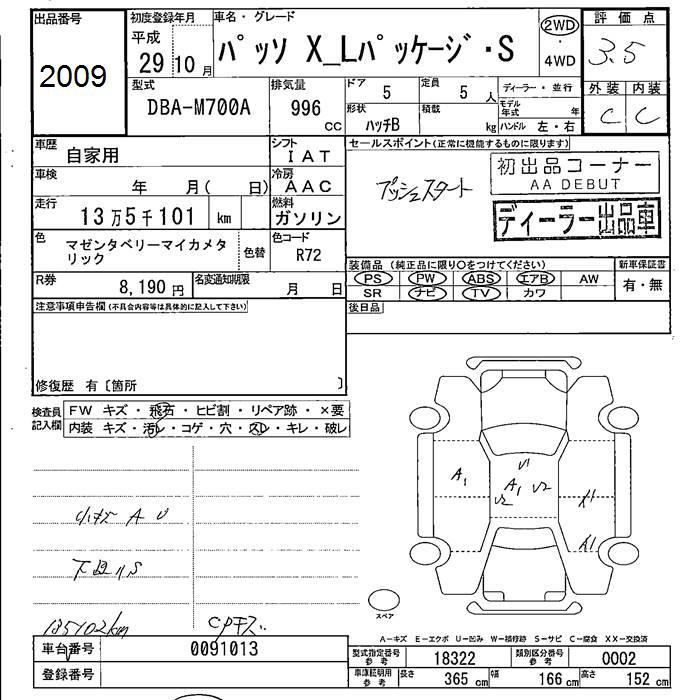 出品番号 2009
初度登録年月 平成 29 10 月
車名・グレード パッソ X_Lパッケージ・S
2WD ・ 4WD
評価点 3.5
型式 DBA-M700A
排気量 996 cc
ドア 5
定員 5 人
形状 ハッチB
積載 kg
ディーラー・並行
モデル年式 年
ハンドル 左・右
外装 内装
C C
車歴 自家用
シフト IAT
車検 年 月( 日)
冷房 AAC
走行 13万5千101 km
燃料 ガソリン
色 マゼンタベリーマイカメタリック
色替
色コード R72
R券 8,190 円
名変通知期限 月 日
セールスポイント(正常に機能するものに限ります)
プッシュスタート
初出品コーナー
AA DEBUT
ディーラー出品車
装備品 (純正品に限り○をつけてください)
新車保証書
PS PW ABS エアB AW 有・無
SR ナビ TV カワ
後日品
注意事項申告欄(不具合内容等は具体的に記入して下さい)
修復歴 有〔箇所 〕
検査員記入欄
FW キズ・飛石・ヒビ割・リペア跡・×要
内装 キズ・汚レ・コゲ・穴・スレ・キレ・破レ
小キズ A U
下廻りS
135102km
CPキズ
A1
U1
U2 A1 U2
A1
A1
スペア
A-キズ E-エクボ U-凹み W-補修跡 S-サビ C-腐食 XX-交換済
車台番号 0091013
登録番号
型式指定番号 参考 18322
類別区分番号 参考 0002
車庫証明用 参考 長さ 365 cm 幅 166 cm 高さ 152 cm